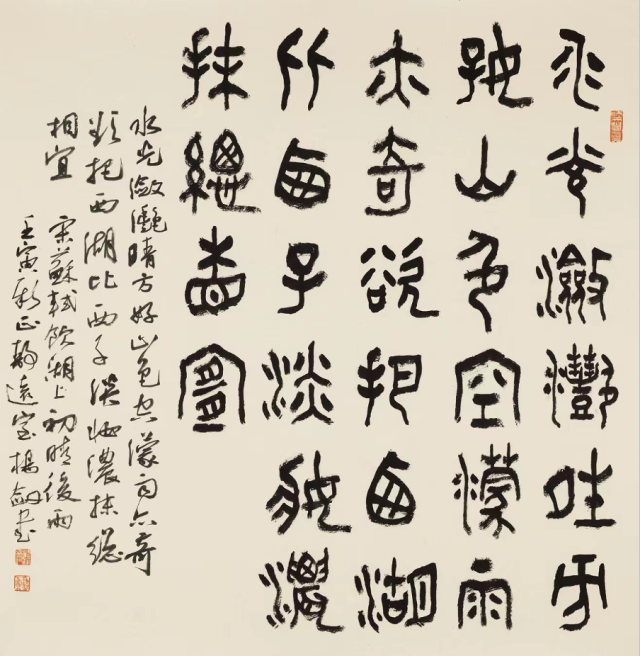 水光瀲灩晴方
好山色空濛雨
亦奇欲把西湖
比西子淡妝濃
抹總相宜
水光瀲灩晴方好山色空濛雨亦奇
欲把西湖比西子淡妝濃抹總
相宜 宋蘇軾飲湖上初晴後雨
壬寅新正靜遠室楊劍書